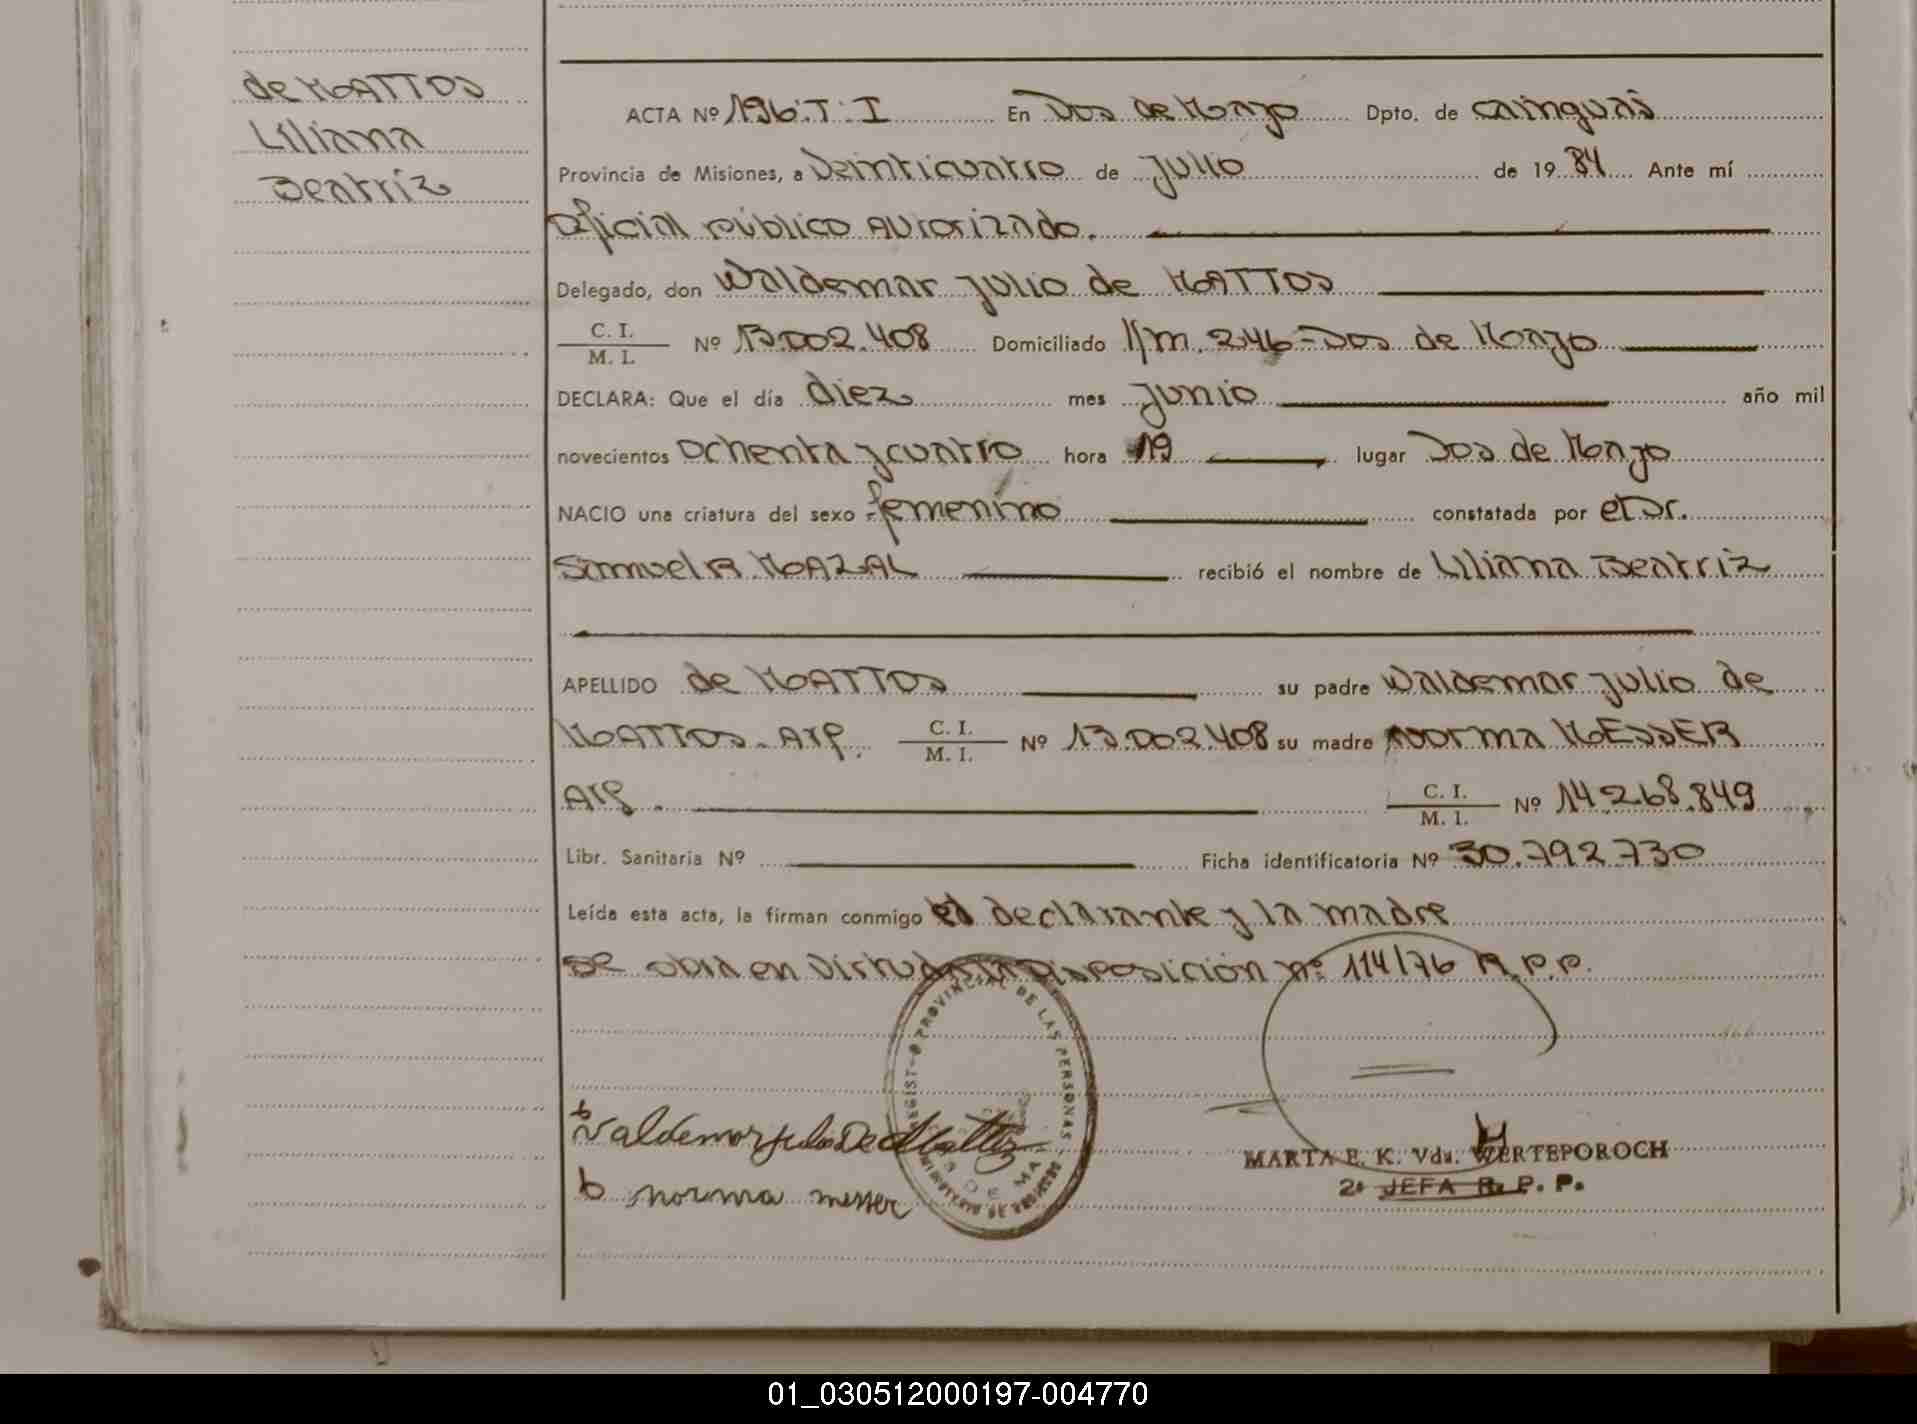 de MATTOS
Liliana
Beatriz
ACTA Nº 196.T.I En Dos de Mayo Dpto. de Cainguás
Provincia de Misiones, a Veinticuatro de Julio de 19 84 Ante mí
Oficial público Autorizado.
Delegado, don Waldemar Julio de MATTOS
C. I.
M. I. Nº 13.002.408 Domiciliado Km. 246-Dos de Mayo
DECLARA: Que el día diez mes Junio año mil
novecientos Ochenta y cuatro hora 19 lugar Dos de Mayo
NACIO una criatura del sexo femenino constatada por el Dr.
Samuel R. MAZAL recibió el nombre de Liliana Beatriz
APELLIDO de MATTOS su padre Waldemar Julio de
MATTOS. Arg. C. I.
M. I. Nº 13.002.408 su madre Norma MESSER
Arg. C. I.
M. I. Nº 14.268.849
Libr. Sanitaria Nº Ficha identificatoria Nº 30.792.730
Leída esta acta, la firman conmigo el declarante y la madre
se obra en virtud a la Disposición nº 114/76 R.P.P.
REGISTRO PROVINCIAL DE LAS PERSONAS
MINISTERIO DE GOBIERNO
DOS DE MAYO
Valdemar Julio De Mattos
Norma Messer
MARTA E. K. Vda. WERTEPOROCH
2º JEFA R. P. P.
01_030512000197-004770